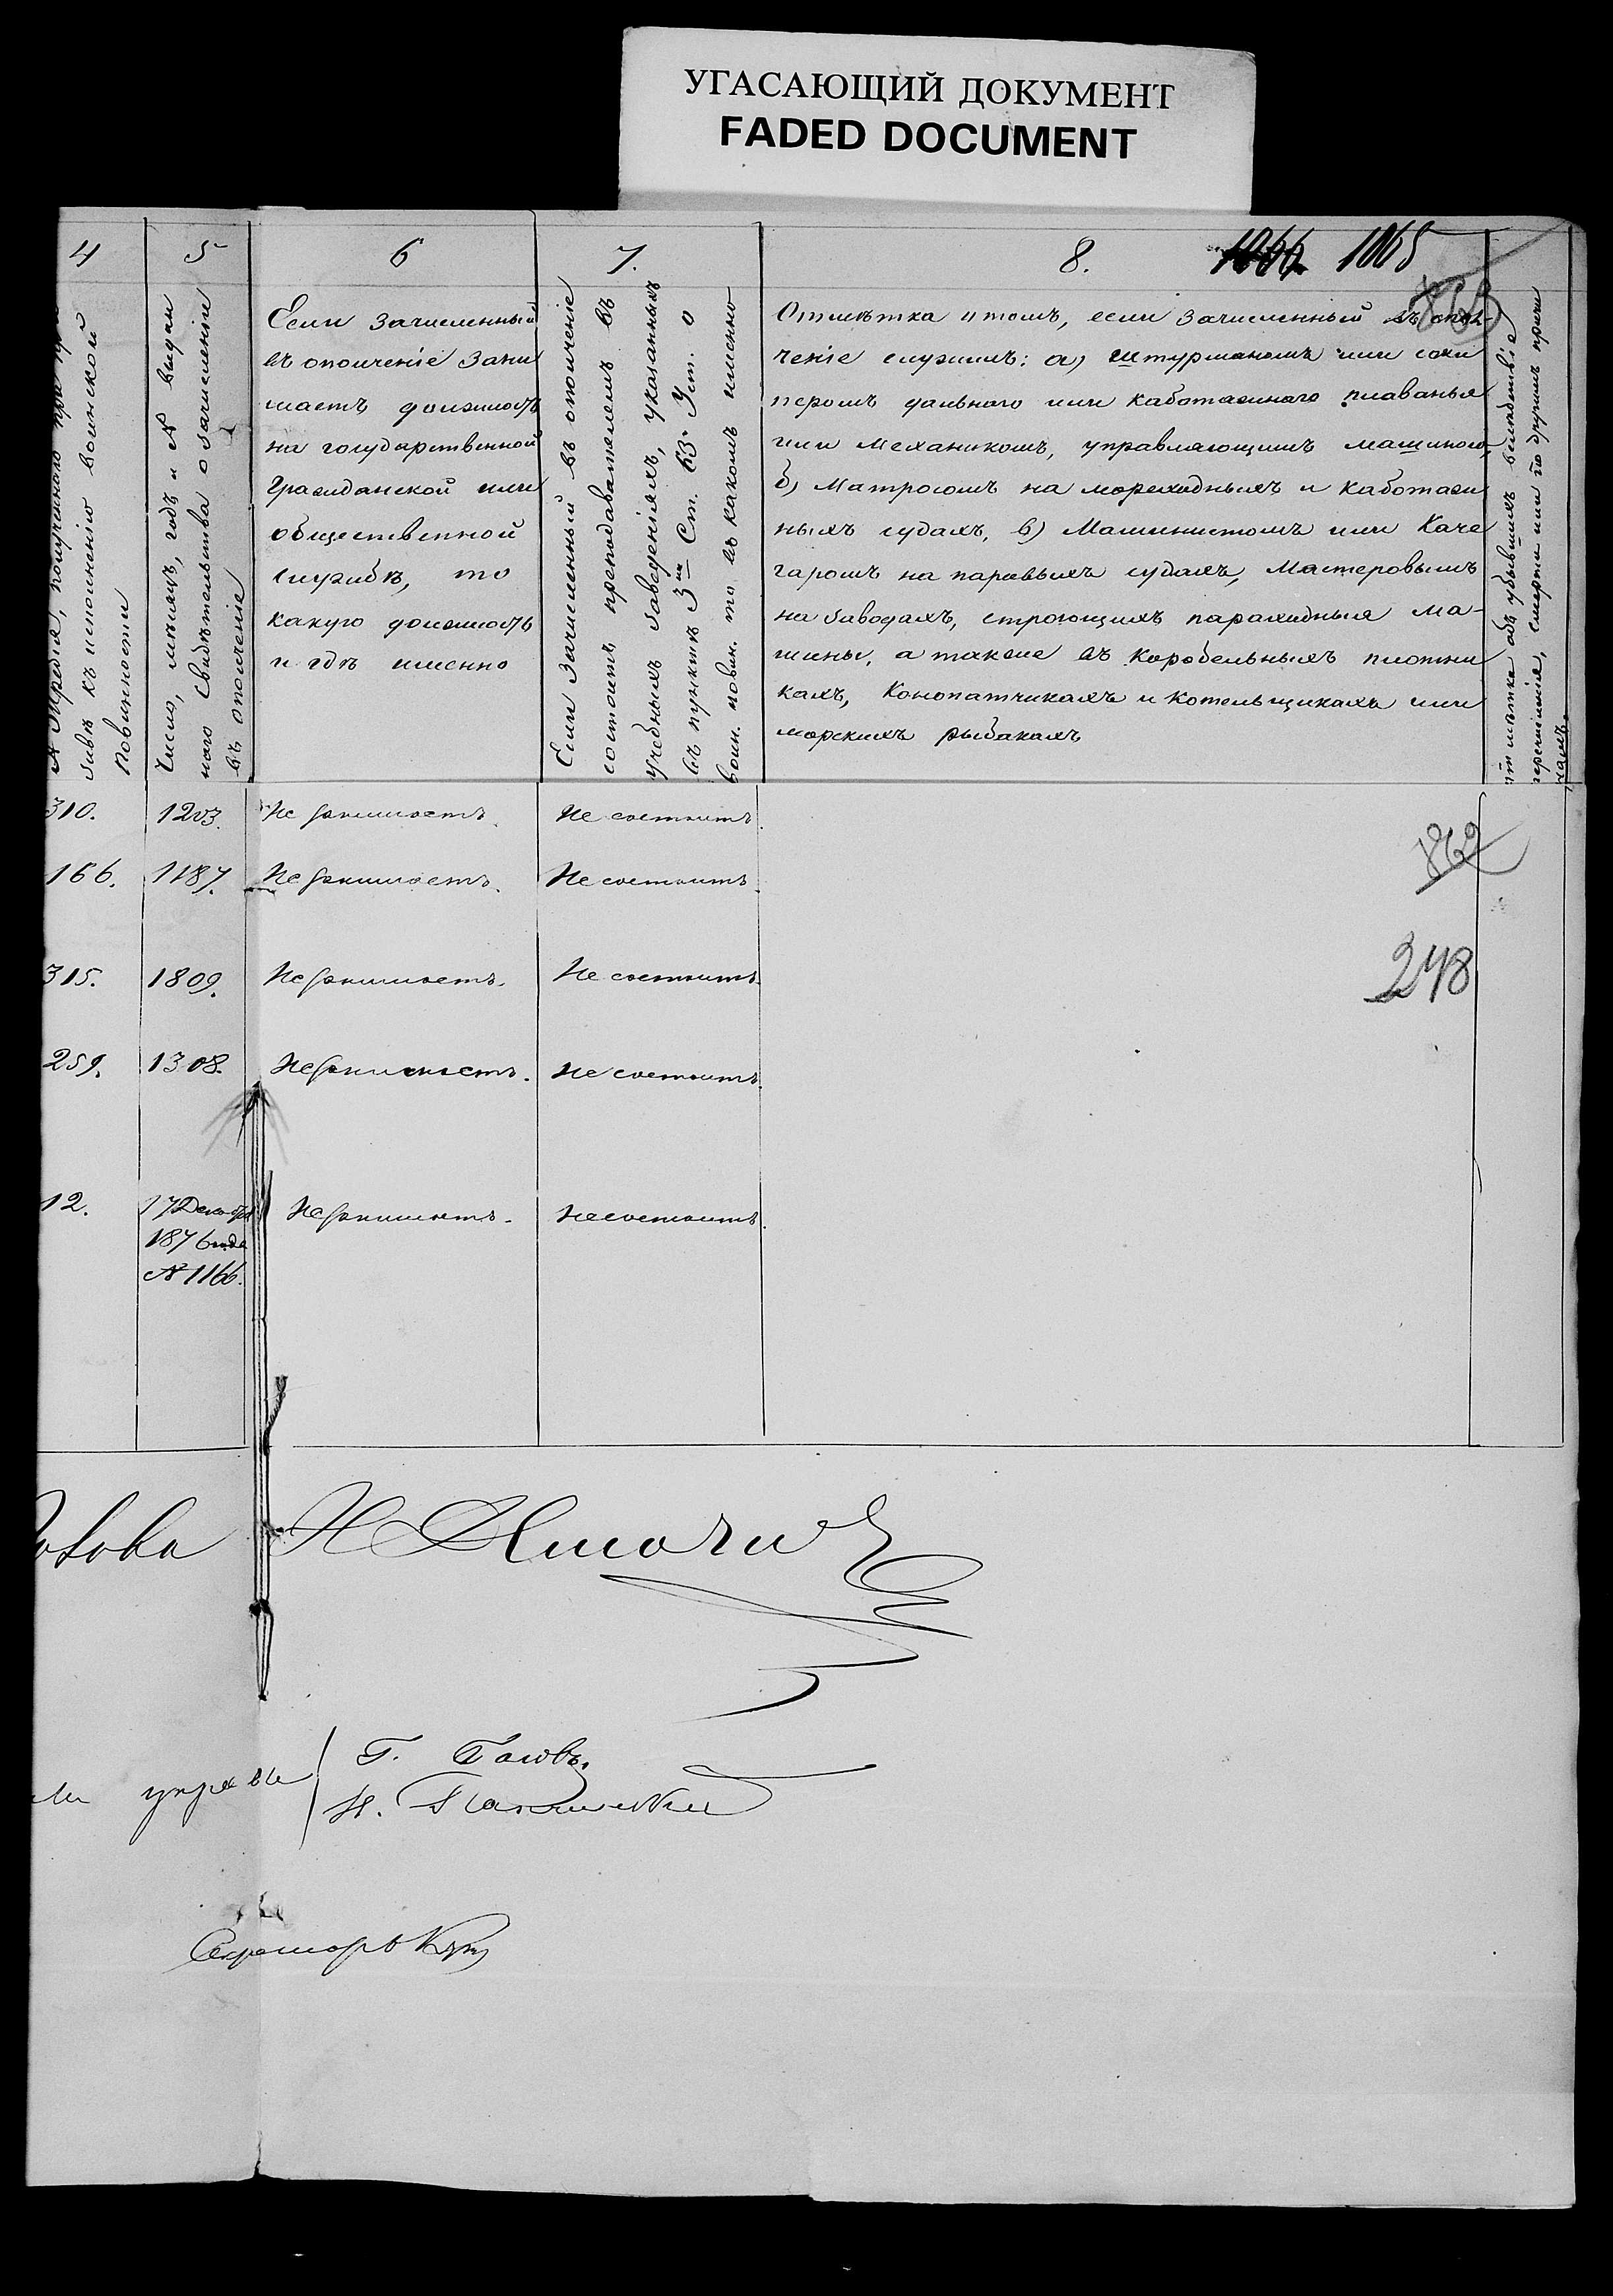 УГАСАЮЩИЙ ДОКУМЕНТ
FADED DOCUMENT
4
5
6
7.
8.
1065
863
жребія, полученнаго при
зывѣ къ исполненію воинской
повинности
Число, мѣсяцъ, годъ и № выдан
наго свидѣтельства о зачисленіи
въ ополченіе
Если зачисленный
въ ополченіе зани
маетъ должность
на государственной
гражданской или
общественной
службѣ, то
какую должность
и гдѣ именно
Если зачисленный въ ополченіе
состоитъ преподавателемъ въ
учебныхъ заведеніяхъ, указанныхъ
въ пунктѣ 3м Ст. 63. Уст. о
воин. повин. то въ какомъ именно
Отмѣтка о томъ, если зачисленный въ опол-
ченіе служитъ: а) штурманомъ или шки
перомъ дальняго или каботажнаго плаванья
или механикомъ, управляющимъ машиною,
б) Матросомъ на мореходныхъ и каботаж
ныхъ судахъ, в) Машинистомъ или Коче
гаромъ на паровыхъ судахъ, Мастеровымъ
на заводахъ, строющихъ пароходныя ма-
шины, а также въ корабельныхъ плотни
кахъ, Конопатчикахъ и котельщикахъ или
морскихъ рыбакахъ
Отмѣтка объ убывшихъ вслѣдствіе
перечисленія, смерти или по другимъ причи
намъ.
310.
1203.
Не занимаетъ.
Не состоитъ.
862
166.
1187.
Не занимаетъ.
Не состоитъ.
315.
1809.
Не занимаетъ.
Не состоитъ.
248
259.
1308.
Не занимаетъ.
Не состоитъ.
12.
17 Декабря
1876 года
№ 1166.
Не занимаетъ.
Не состоитъ.
Голова
управы
Секретарь